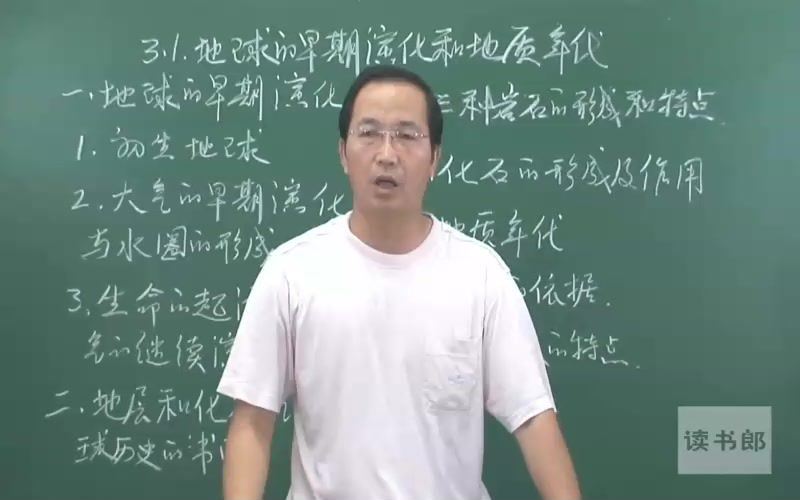 3.1.地球的早期演化和地质年代
一、地球的早期演化
1.初生地球
2.大气的早期演化
与水圈的形成
3.生命的起
气的继续演
二、地层和化
球历史的书
三种岩石的形成和特点
化石的形成及作用
地质年代
依据.
的特点.
读书郎